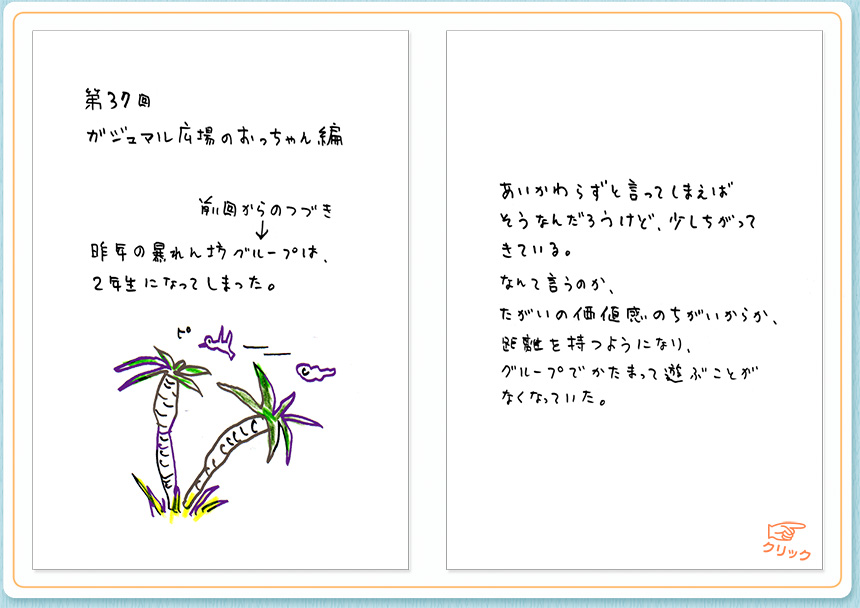 第37回
ガジュマル広場のおっちゃん編
前回からのつづき
↓
昨年の暴れん坊グループは、
2年生になってしまった。
ピ
あいかわらずと言ってしまえば
そうなんだろうけど、少しちがって
きている。
なんて言うのか、
たがいの価値感のちがいからか、
距離を持つようになり、
グループでかたまって遊ぶことが
なくなっていた。
クリック